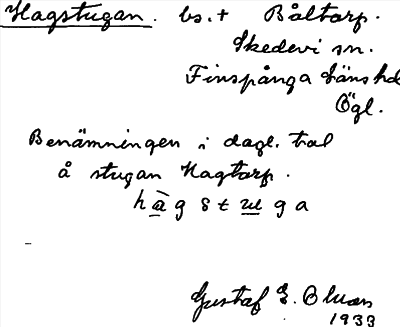 Hagstugan. bs. + Båltorp.
Skedevi sn.
Finspånga läns hd
Ögl.
Benämningen i dagl. tal
å stugan Hagtorp.
hàgstuga
Gustaf E.
1933